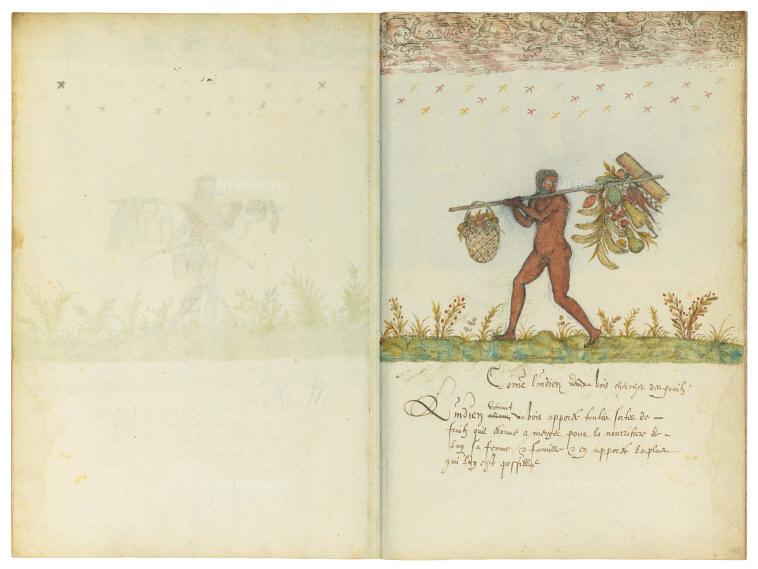 Come l'indien va au bois chercher des fruitz
L'indien venant au bois apporte toutes sortes de
fruitz que trouve a menger pour la nourriture de
luy sa femme & famille & en apporte le plus
qui luy est possible
Art Resource